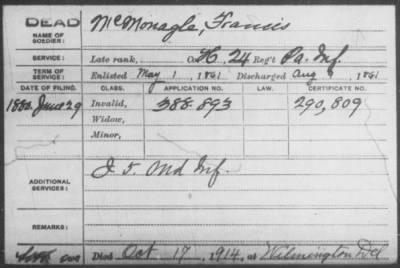 DEAD
NAME OF SOLDIER: McMonagle, Francis
SERVICE: Late rank, Co. H, 24 Reg't Pa. Inf.
TERM OF SERVICE: Enlisted May 1, 1861 Discharged Aug 1861
DATE OF FILING. CLASS. APPLICATION NO. LAW. CERTIFICATE NO.
1880 June 29 Invalid, 388.893 290,809
Widow,
Minor,
ADDITIONAL SERVICES: I 5. Md Inf.
REMARKS:
Died Oct 17, 1914, at Wilmington Del